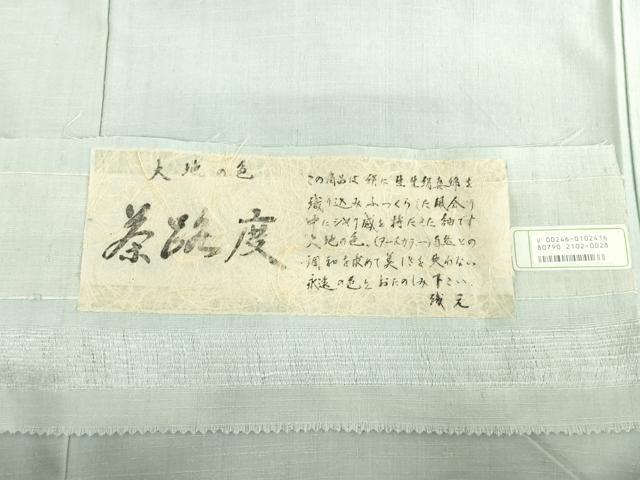 大地の色
茶路度
この商品は絹に生生絹真綿を
織り込みふっくらした風合の
中にシャリ感を持たせた紬です
大地の色。(アースカラー)自然との
調和を求めて美しさを失わない
永遠の色をおたのしみ下さい。
織元
V 00246-0102416
80790 2102-0028